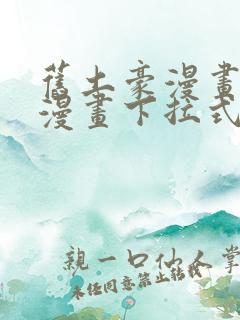 舊土豪漫畫
漫畫下拉式
親一口仙人掌
未任同意禁止轉載